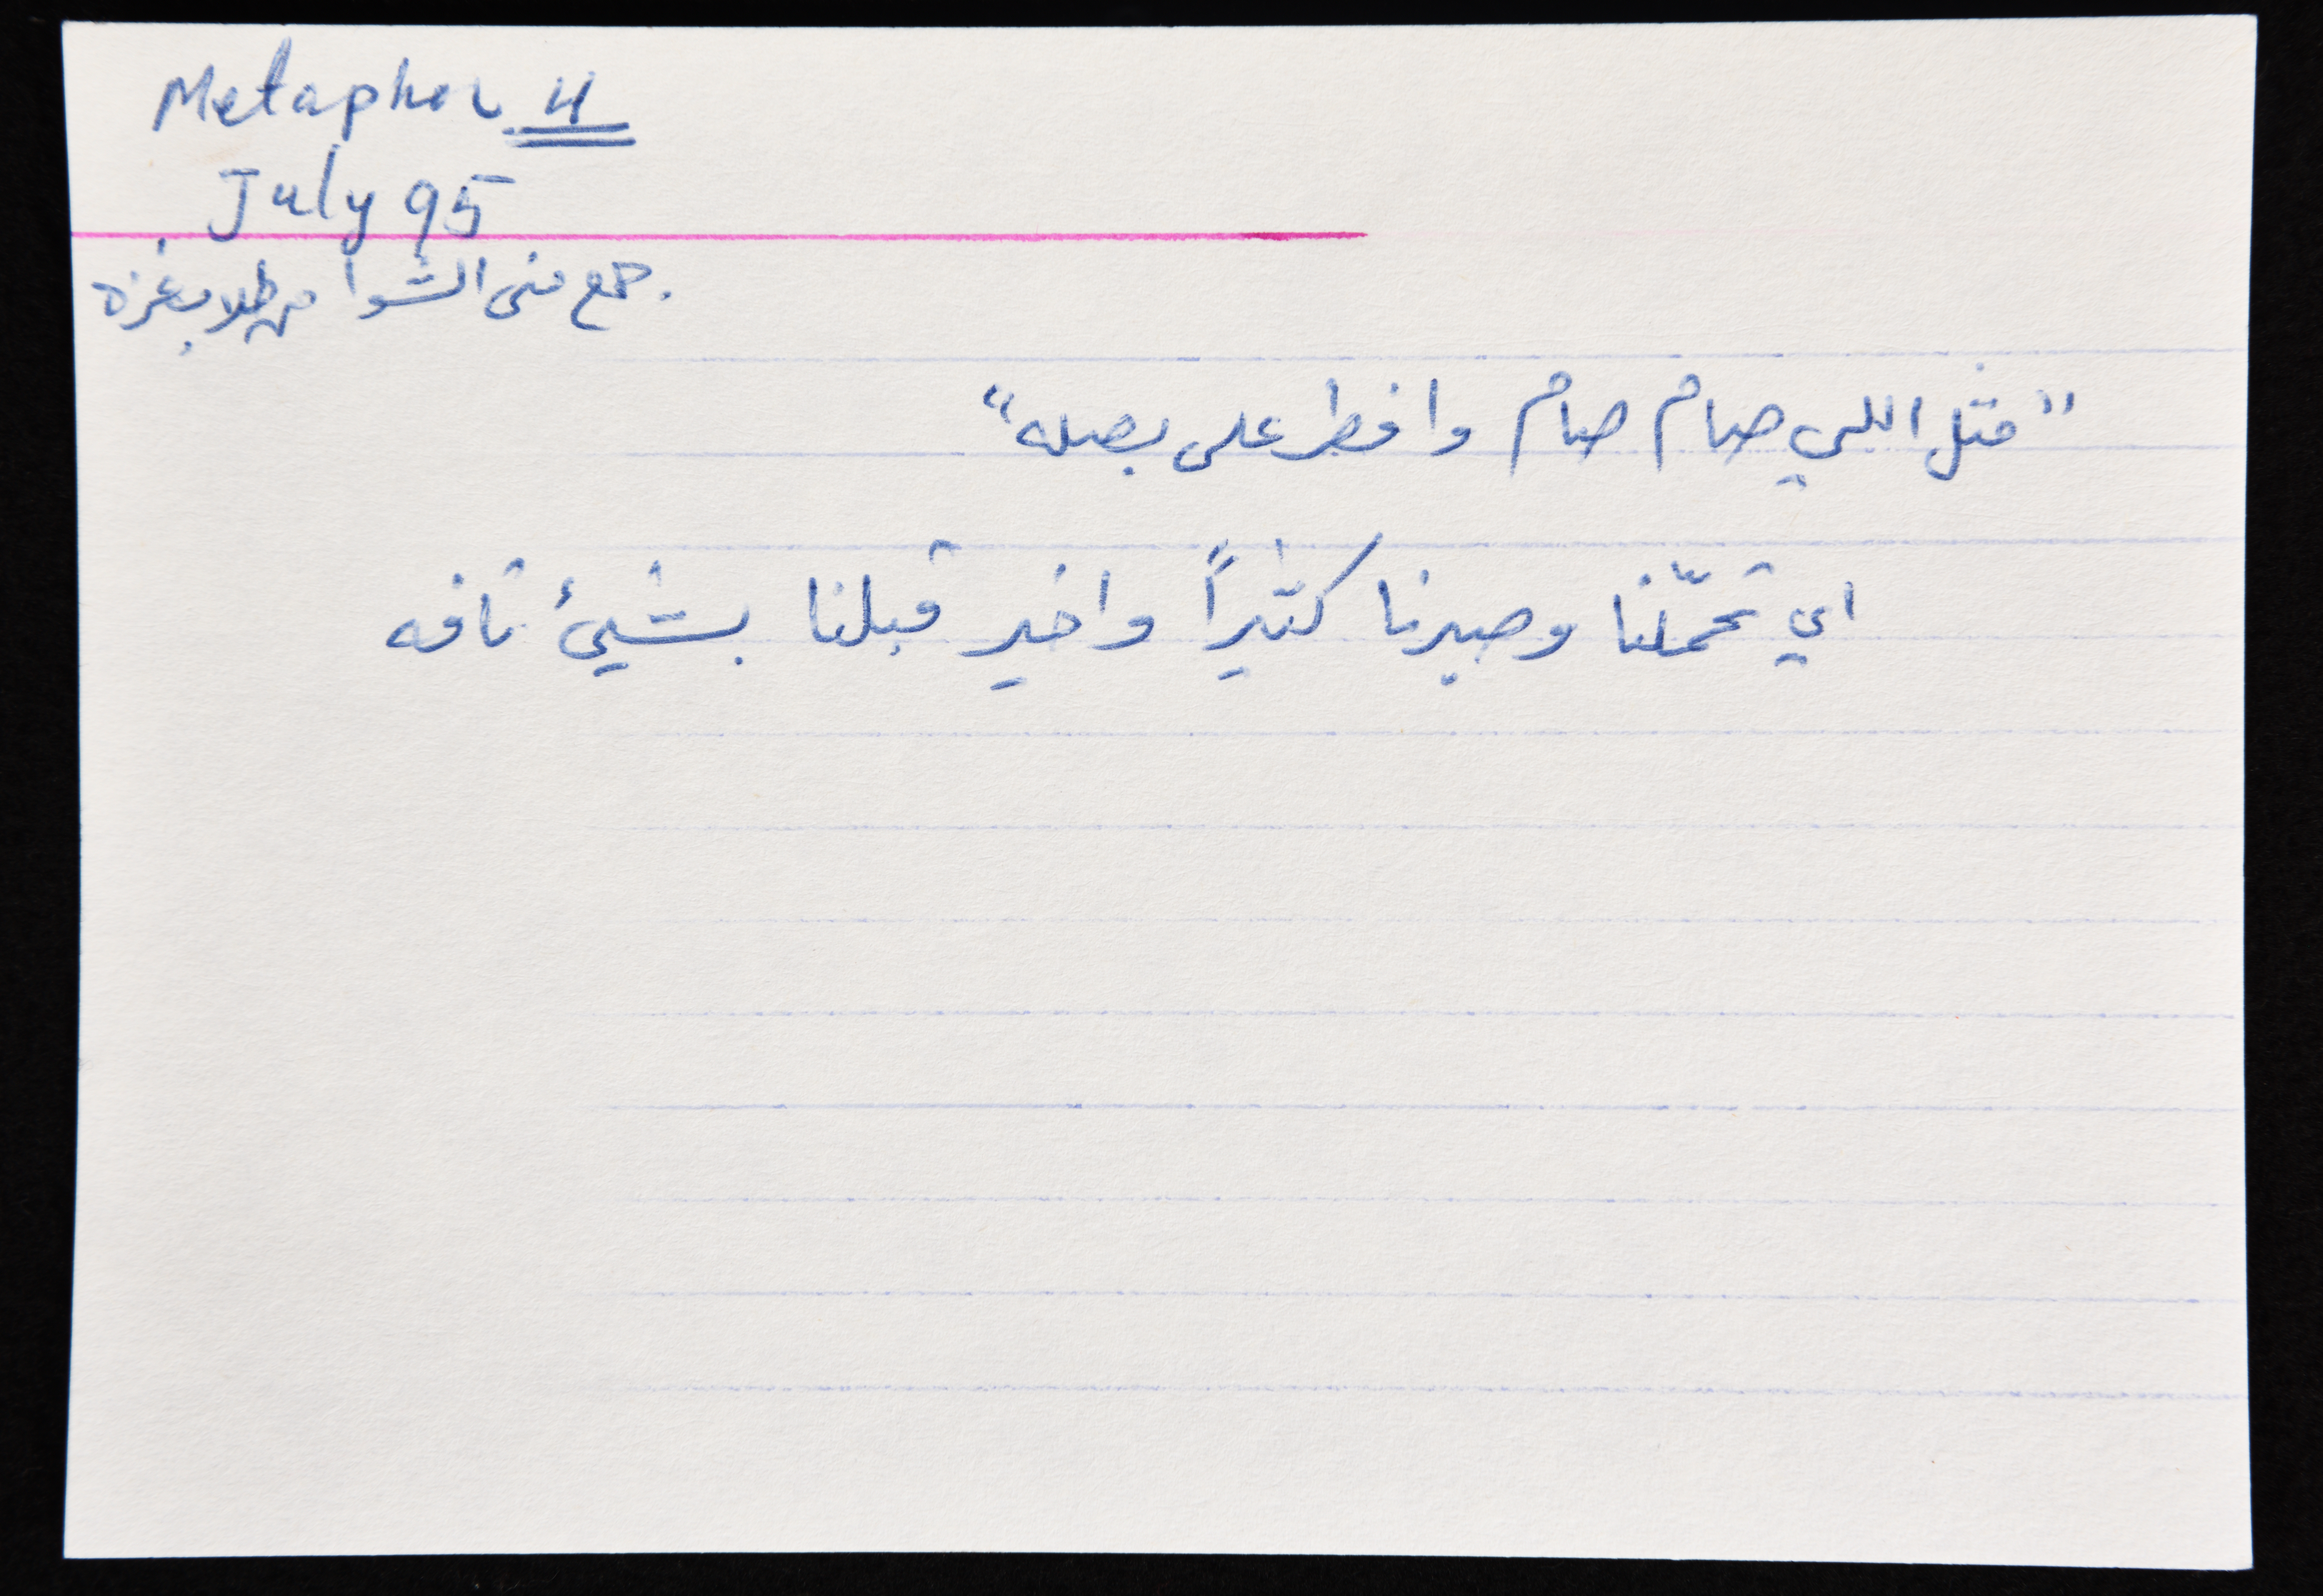 Metaphor 4
July 95
جمع منى الشوا من طلاب غزه.
"مثل اللي صام صام وافطر على بصله"
اي تحمّلنا وصبرنا كثيراً واخير قبلنا بشيئ تافه